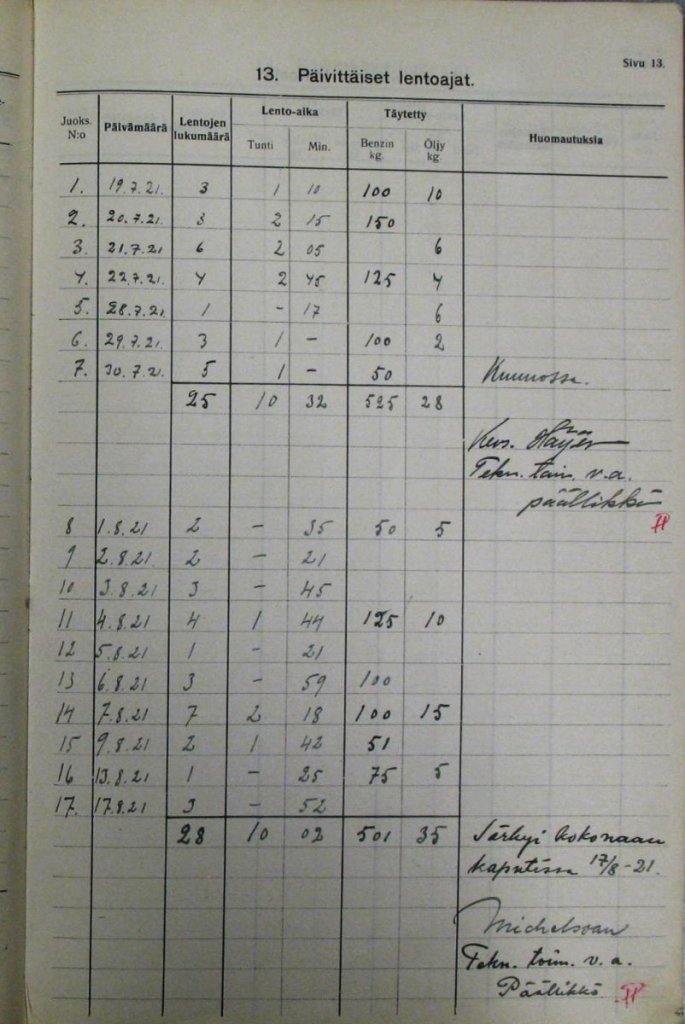 Sivu 13.
13. Päivittäiset lentoajat.
Juoks. N:o Päivämäärä Lentojen lukumäärä Lento-aika Täytetty Huomautuksia
Tunti Min. Benzin kg. Öljy kg.
1. 19.7.21. 3 1 10 100 10
2. 20.7.21. 3 2 15 150
3. 21.7.21 6 2 05 6
4. 22.7.21. 4 2 45 125 4
5. 28.7.21. 1 - 17 6
6. 29.7.21. 3 1 - 100 2
7. 30.7.21. 5 1 - 50 Kunnossa.
25 10 32 525 28
Tekn. toim. v.a.
päällikkö
8 1.8.21 2 - 35 50 5
9 2.8.21 2 - 21
10 3.8.21 3 - 45
11 4.8.21 4 1 44 125 10
12 5.8.21 1 - 21
13 6.8.21 3 - 59 100
14 7.8.21 7 2 18 100 15
15 9.8.21 2 1 42 51
16 13.8.21 1 - 25 75 5
17. 17.8.21 3 - 52
28 10 02 501 35 Särkyi kokonaan
17/8-21.
Michelsson
Tekn. toim. v.a.
Päällikkö